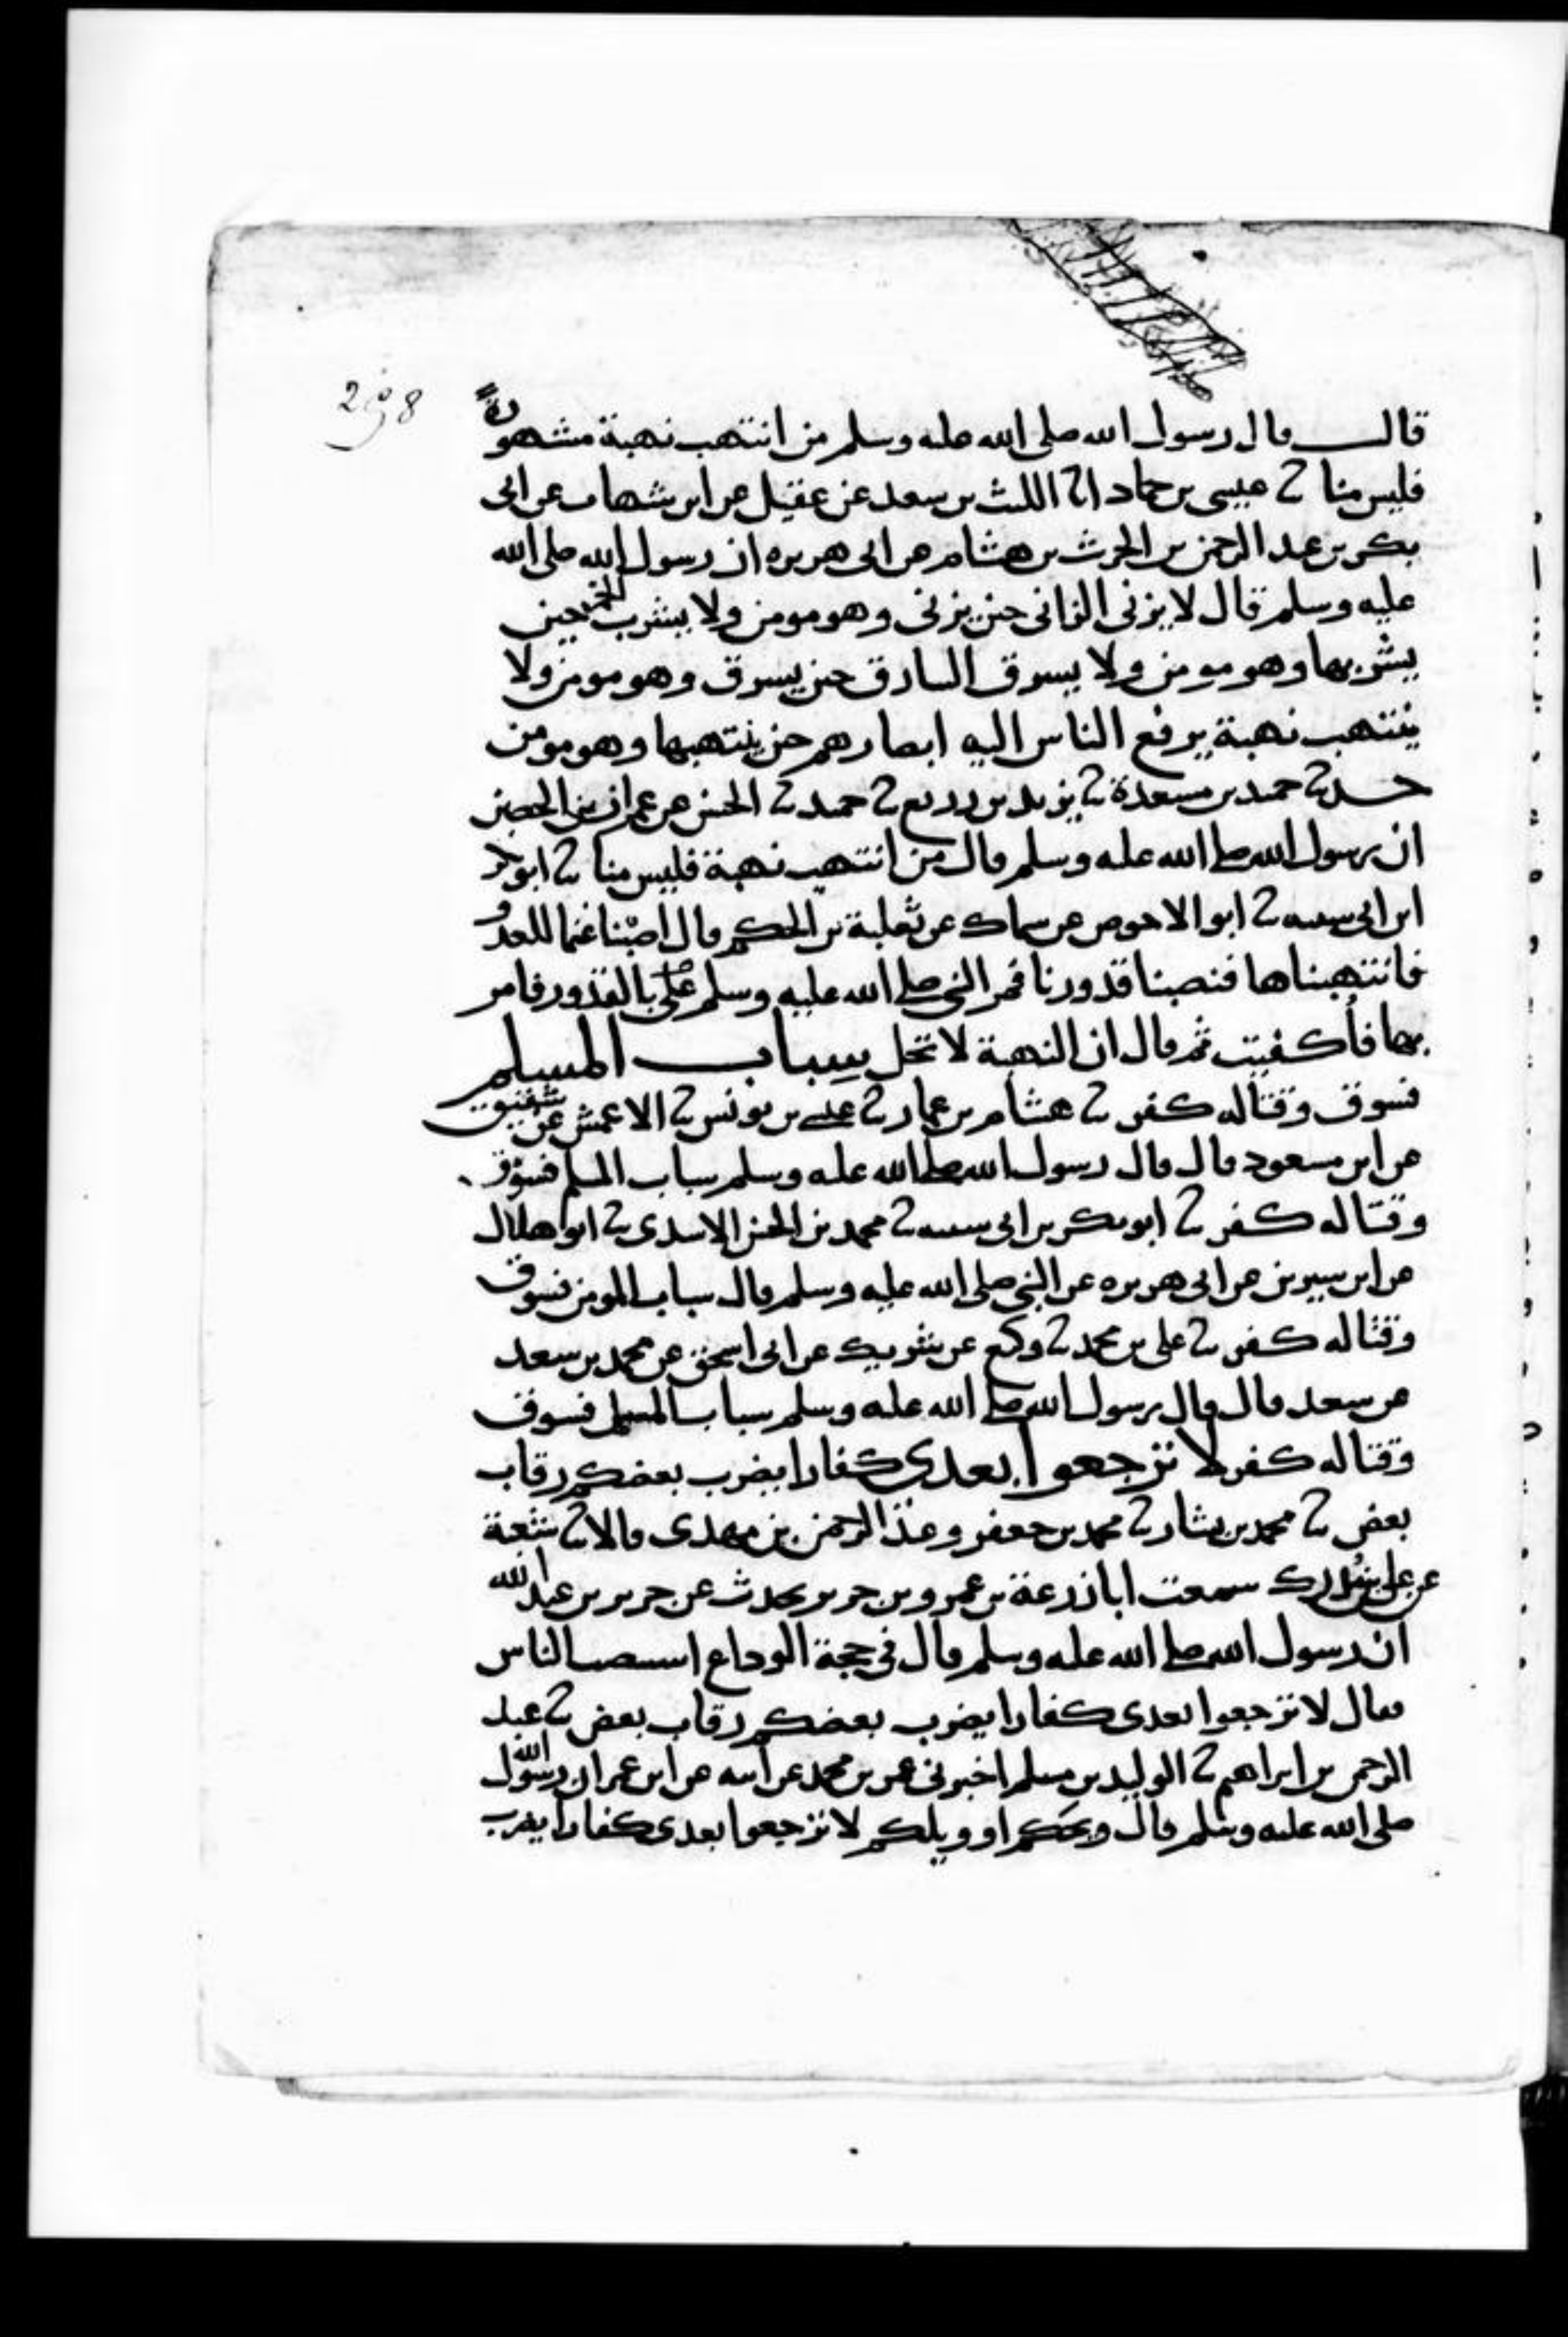 298
قالـــ قال رسول الله صلى الله عليه وسلم من انتهب نهبة مشهورةً
فليس منا ثنا عيسى بن حماد انا الليث بن سعد عن عقيل عن ابن شهاب عن ابى
بكر بن عبد الرحمن بن الحرث بن هشام عن ابى هريره ان رسول الله صلى الله
عليه وسلم قال لا يزنى الزانى حين يزنى وهو مومن ولا يشرب الخمر حين
يشربها وهو مومن ولا يسرق السارق حين يسرق وهو مومن ولا
ينتهب نهبة يرفع الناس اليه ابصارهم حين ينتهبها وهو مومن
حدثنا حميد بن مسعدة ثنا يزيد بن زريع ثنا حميد ثنا الحسن عن عمران بن الحصين
ان رسول الله صلى الله عليه وسلم قال من انتهب نهبة فليس منا ثنا ابو بكر
ابن ابى شيبه ثنا ابو الاحوص عن سماك عن ثعلبة بن الحكم قال اصبنا غنما للعدو
فانتهبناها فنصبنا قدورنا فمر النبى صلى الله عليه وسلم على بالقدور فامر
بها فأكفيت ثم قال ان النهبة لا تحل سباب المسلم
فسوق وقتاله كفر ثنا هشام بن عمار ثنا عيسى بن يونس ثنا الاعمش عن شقيق
عن ابن مسعود قال قال رسول الله صلى الله عليه وسلم سباب المسلم فسوق
وقتاله كفر ثنا ابو بكر بن ابى شيبه ثنا محمد بن الحسن الاسدى ثنا ابو هلال
عن ابن سيرين عن ابى هريره عن النبى صلى الله عليه وسلم قال سباب المومن فسوق
وقتاله كفر ثنا على بن محمد ثنا وكيع عن شريك عن ابى اسحق عن محمد بن سعد
عن سعد قال قال رسول الله صلى الله عليه وسلم سباب المسلم فسوق
وقتاله كفر لا ترجعوا بعدى كفارا يضرب بعضكم رقاب
بعض ثنا محمد بن بشار ثنا محمد بن جعفر وعبد الرحمن بن مهدى قالا ثنا شعبة
عن على بن مدرك سمعت ابا زرعة بن عمرو بن جرير يحدث عن جرير بن عبد الله
ان رسول الله صلى الله عليه وسلم قال فى حجة الوداع استنصت الناس
فقال لا ترجعوا بعدى كفارا يضرب بعضكم رقاب بعض ثنا عبد
الرحمن بن ابراهيم ثنا الوليد بن مسلم اخبرنى عمر بن محمد عن ابيه عن ابن عمر ان رسول الله
صلى الله عليه وسلم قال ويحكم او ويلكم لا ترجعوا بعدى كفارا يضرب